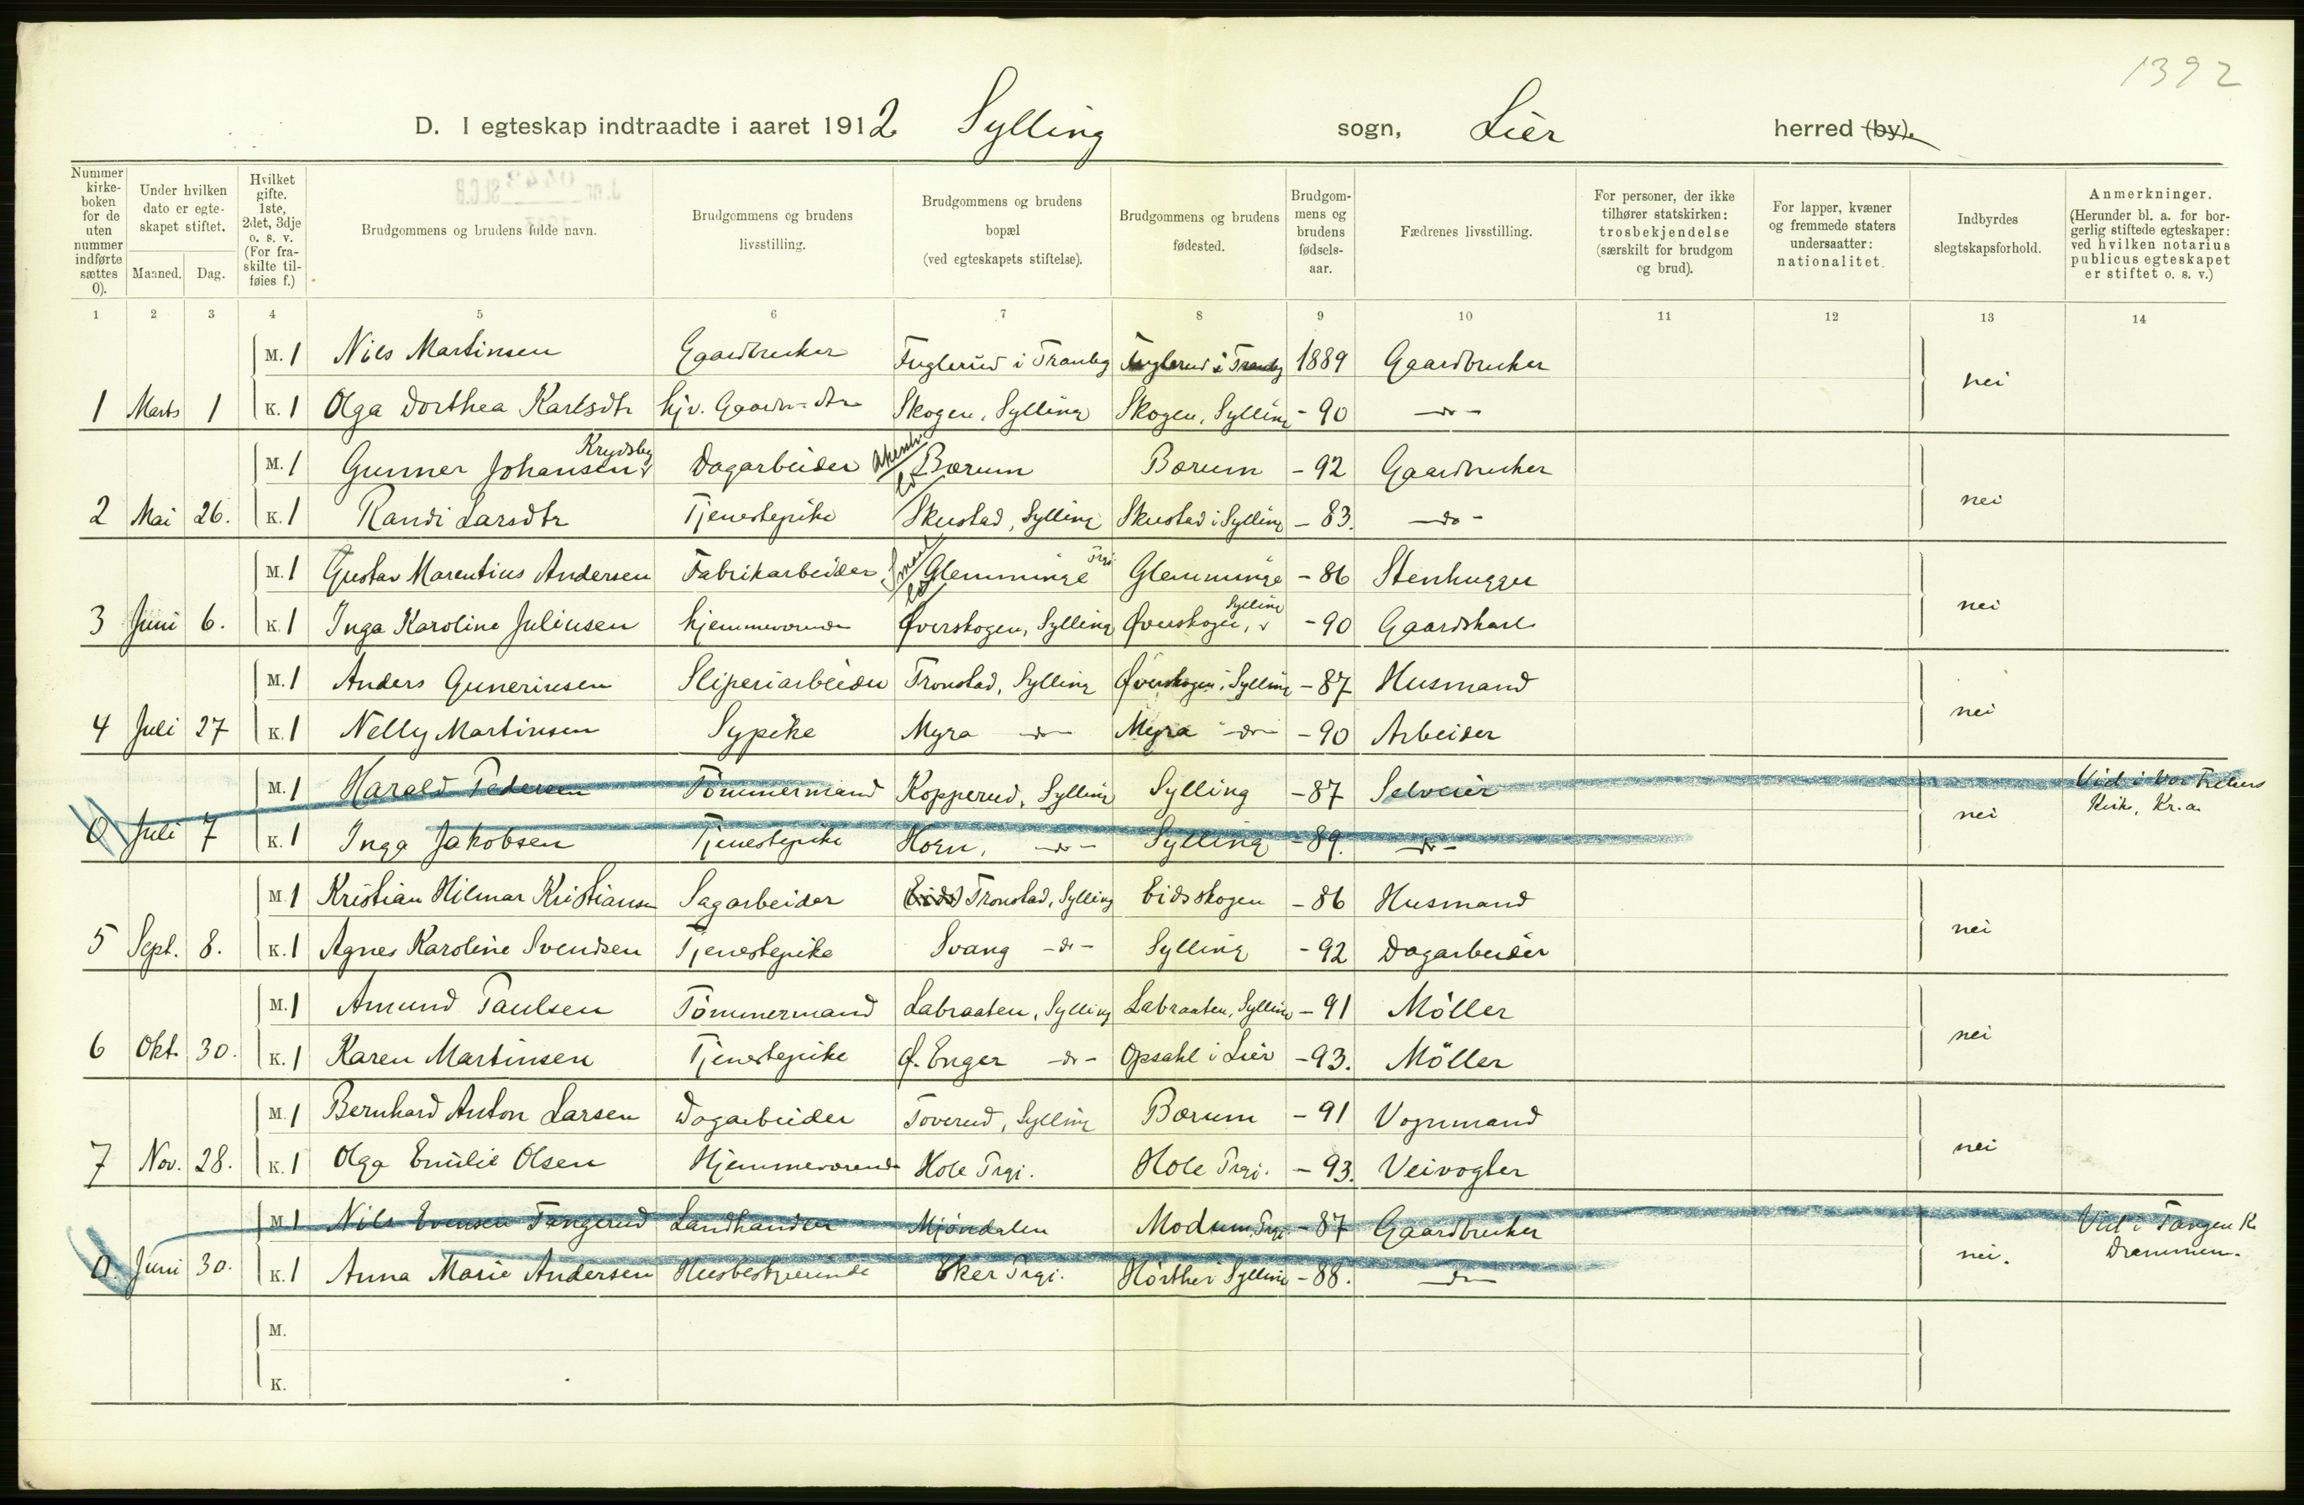 1392
D. I egteskap indtraadte i aaret 1912 Sylling sogn, Lier herred (by).
Nummer kirkeboken for de uten nummer indførte sættes 0).
Under hvilken dato er egteskapet stiftet.
Maaned. Dag.
Hvilket gifte. 1ste, 2det, 3dje o. s. v. (For fraskilte tilføies f.)
Brudgommens og brudens fulde navn.
Brudgommens og brudens livsstilling.
Brudgommens og brudens bopæl (ved egteskapets stiftelse).
Brudgommens og brudens fødested.
Brudgommens og brudens fødselsaar.
Fædrenes livsstilling.
For personer, der ikke tilhører statskirken: trosbekjendelse (særskilt for brudgom og brud).
For lapper, kvæner og fremmede staters undersaatter: nationalitet.
Indbyrdes slegtskapsforhold.
Anmerkninger. (Herunder bl. a. for borgerlig stiftede egteskaper: ved hvilken notarius publicus egteskapet er stiftet o. s. v.)
1 2 3 4 5 6 7 8 9 10 11 12 13 14
M. 1 Nils Martinsen Gaardbruker Fuglerud i Tranby Fuglerud i Tranby 1889 Gaardbruker
1 Marts 1 K. 1 Olga Dorthea Karlsdtr hjv. Gaardbr. dtr Skogen, Sylling Skogen, Sylling - 90 -do- nei
Krydsby
M. 1 Gunner Johansen Dagarbeider Bærum Bærum - 92 Gaardbruker
2 Mai 26. K. 1 Randi Larsdtr Tjenestepike Skustad, Sylling Skustad i Sylling - 83. -do- nei
M. 1 Gustav Marentius Andersen Fabrikarbeider Glemminge Prgj. Glemminge - 86 Stenhugger
3 Juni 6. K. 1 Inga Karoline Juliusen hjemmeværende Øverskogen, Sylling Øverskogen, Sylling - 90 Gaardskarl nei
M. 1 Anders Gunerinsen Sliperiarbeider Tronstad, Sylling Øverskogen i Sylling - 87 Husmand
4 Juli 27 K. 1 Nelly Martinsen Sypike Myra -do- Myra -do- - 90 Arbeider nei
M. 1 Harald Pedersen Tømmermand Kopperud, Sylling Sylling - 87 Selveier Vid i Vor Frelsers
0 Juli 7 K. 1 Inga Jakobsen Tjenestepike Horn, -do- Sylling - 89. -do- nei Kirk, Kr.a
M. 1 Kristian Hilmar Kristiansen Sagarbeider Tronstad, Sylling Eidsskogen - 86 Husmand
5 Sept. 8. K. 1 Agnes Karoline Svendsen Tjenestepike Svang -do- Sylling - 92 Dagarbeider nei
M. 1 Amund Paulsen Tømmermand Labraaten, Sylling Labraaten, Sylling - 91 Møller
6 Okt. 30. K. 1 Karen Martinsen Tjenestepike Ø. Enger -do- Opsahl i Lier - 93. Møller nei
M. 1 Bernhard Anton Larsen Dagarbeider Toverud, Sylling Bærum - 91 Vognmand
7 Nov. 28. K. 1 Olga Emilie Olsen Hjemmeværende Hole Prgj. Hole Prgj. - 93. Veivogter nei
M. 1 Nils Evensen Tangerud Landhandler Mjøndalen Modum Prgj. - 87 Gaardbruker Vid i Tangen K.
0. Juni 30. K. 1 Anna Marie Andersen Husbestyrerinde Eker Prgj. Hørthe i Sylling - 88. -do- nei. Drammen.
M.
K.